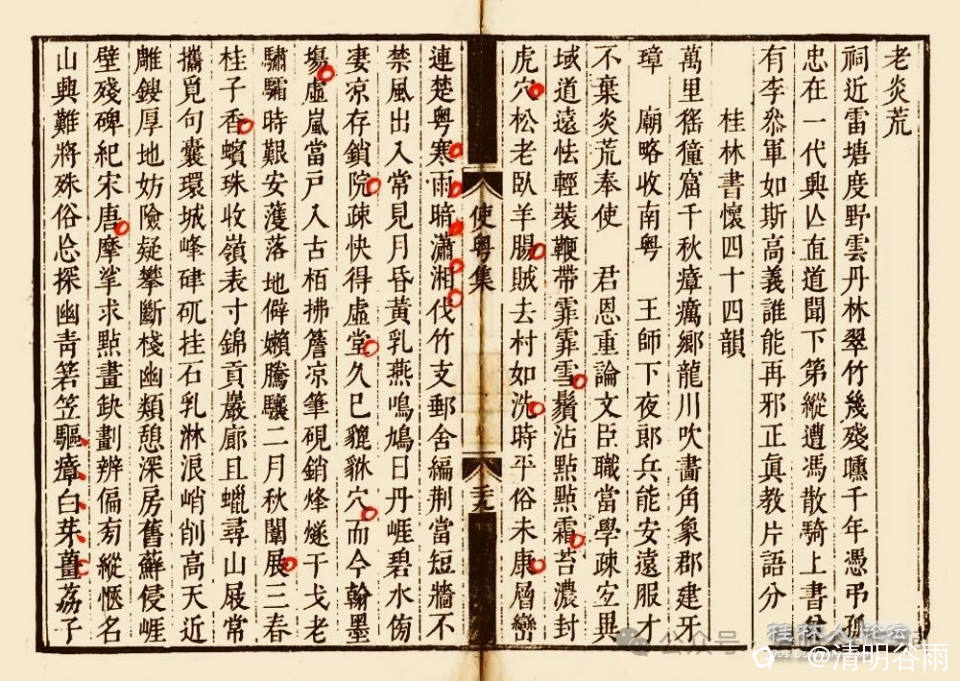 老炎荒
祠近雷塘度野雲丹林翠竹幾殘曛千年憑弔孤
忠在一代興亾直道聞下第縱遭馮散騎上書曾
有李叅軍如斯高義誰能再邪正眞教片語分
桂林書懷四十四韻
萬里猺獞窟千秋瘴癘鄉龍川吹畵角象郡建牙
璋 廟略收南粤 王師下夜郎兵能安遠服才
不棄炎荒奉使 君恩重論文臣職當學疎宐異
域道遠怯輕裝鞭帶霏霏雪鬚沾點點霜苔濃封
虎穴松老臥羊腸賊去村如洗時平俗未康層巒
使粤集
三九
連楚粤寒雨暗瀟湘伐竹支郵舍編荆當短牆不
禁風出入常見月昏黃乳燕鳴鳩日丹崕碧水傍
凄凉存鎖院疎快得虛堂久巳貔貅穴而今翰墨
塲虛嵐當戶入古栢拂簷凉筆硯銷烽燧干戈老
驌驦時艱安濩落地僻嬾騰驤二月秋闈展三春
桂子香蠙珠收嶺表寸錦貢巖廊且蠟尋山屐常
攜覓句囊環城峰硉矹挂石乳淋浪峭削高天近
雕鎪厚地妨險疑攀斷棧幽類憩深房舊蘚侵崕
壁殘碑紀宋唐摩挲求點畫缺劃辨偏旁縱愜名
山興難將殊俗忘探幽靑箬笠驅瘴白芽薑荔子
公众号
桂林人论坛
@清明谷雨